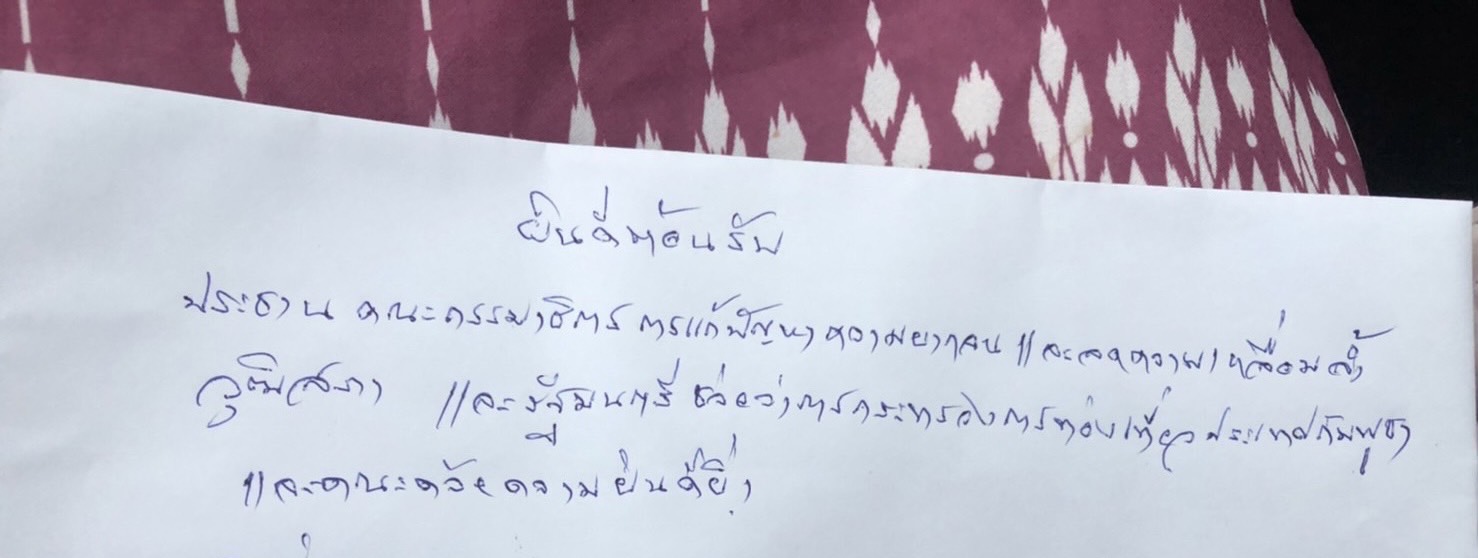 ยินดีต้อนรับ
ประธาน คณะกรรมาธิการ การแก้ปัญหาความยากจน และลดความเหลื่อมล้ำ
วุฒิสภา และรัฐมนตรี ช่วยว่าการกระทรวงการท่องเที่ยวประเทศกัมพูชา
และคณะด้วยความยินดียิ่ง